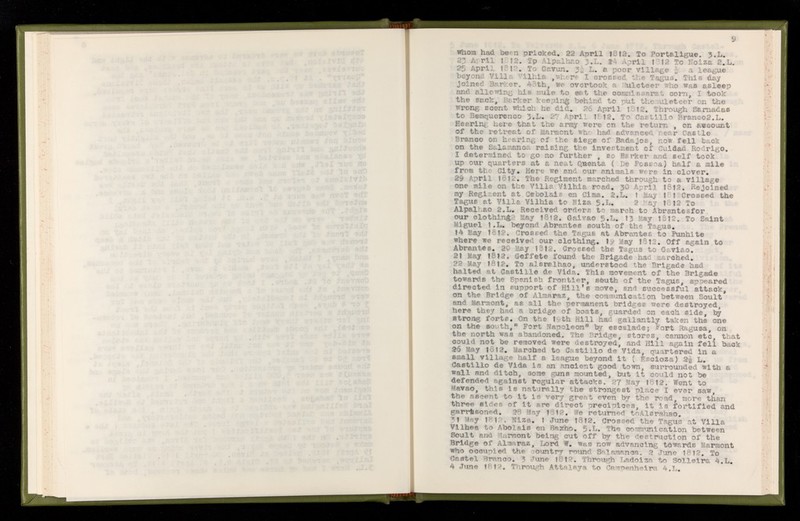 9
whom had been pricked. 22 April 1812. To Portaligue. 3.L.
23 April 1812. To Alpalhao 3.L. 24 April 1812 To Neiza 2.L.
25 April 1812. To Gavun. 3½ L. a poor village ½ a league
beyond Villa Vilhia ,where I crossed the Tagus. This day
joined Barker. 48th, we overtook a Muleteer who was asleep
and allowing his mule to eat the commissariat corn, I took
the sack, Barker keeping behind to put the muleteer on the
wrong scent which he did. 26 April 1812. Through Sarnadas
to Bemquerenco 3.L. 27 April 1812. To Castillo Branco2.L.
Hearing here that the army were on the return , on account
of the retreat of Marmont who had advanced near Castle
Branco on hearing of the siege of Badajos, now fell back
on the Salamanca raising the investment of Cuidad Rodrigo.
I determined to go no further , so Barker and self took
up our quarters at a neat Quenta ( De Fosscoa) half a mile
from the City. Here we and our animals were in clover.
29 April 1812. The Regiment marched through to a village
one mile on the Villa Vilhia road. 30 April 1812. Rejoined
my Regiment at Cebolais en Cima. 2.L. 1 May 1812Crossed the
Tagus at Villa Vilhia to Niza 5.L. 2 May 1812 To
Alpalhao 2.L. Received orders to march to Abrantesfor
our clothing2 May 1812. Gaivao 5.L. 13 May 1812. To Saint
Miguel 1.L. beyond Abrantes south of the Tagus.
14 May 1812. Crossed the Tagus at Abrantes to Punhite
where we received our clothing. 19 May 1812. Off again to
Abrantes. 20 May 1812. Crossed the Tagus to Gaviao.
21 May 1812. Geffete found the Brigade had marched.
22 May 1812. To alerelhao, understood the Brigade had
halted at Castille de Vida. This movement of the Brigade
towards the Spanish frontier, south of the Tagus, appeared
directed in support of Hill's move, and successful attack,
on the Bridge of Almaras, the communication between Soult
and Marmont, as all the permanent bridges were destroyed,
here they had a bridge of boats, guarded on each side, by
strong forts. On the 19th Hill had gallantly taken the one
on the south," Fort Napoleon" by escalade; Fort Ragusa, on
the north was abandoned. The Bridge, stores, cannon etc, that
could not be removed were destroyed, and Hill again fell back
26 May 1812. Marched to Castillo de Vida, quartered in a
small village half a league beyond it ( Escioza) 2½ L.
Castillo de Vida is an ancient good town, surrounded with a
wall and ditch, some guns mounted, but it could not be
defended against regular attacks. 27 May 1812. Went to
Mavao, this is naturally the strongest place I ever saw,
the ascent to it is very great even by the road, more than
three sides of it are direct precipices, it is fortified and
garrisoned. 28 May 1812. We returned toAlerahao.
31 May 1812. Niza. 1 June 1812. Crossed the Tagus at Villa
Vilhea to Abolais en Bazho. 5.L. The communication between
Soult and Marmont being cut off by the destruction of the
Bridge of Almaras, Lord W. was now advancing towards Marmont
who occupied the country round Salamanca. 2 June 1812. To
Castel Branco. 3 June 1812. Through Ladoiza to Solleira 4.L.
4 June 1812. Through Attalaya to Campenheira 4.L.